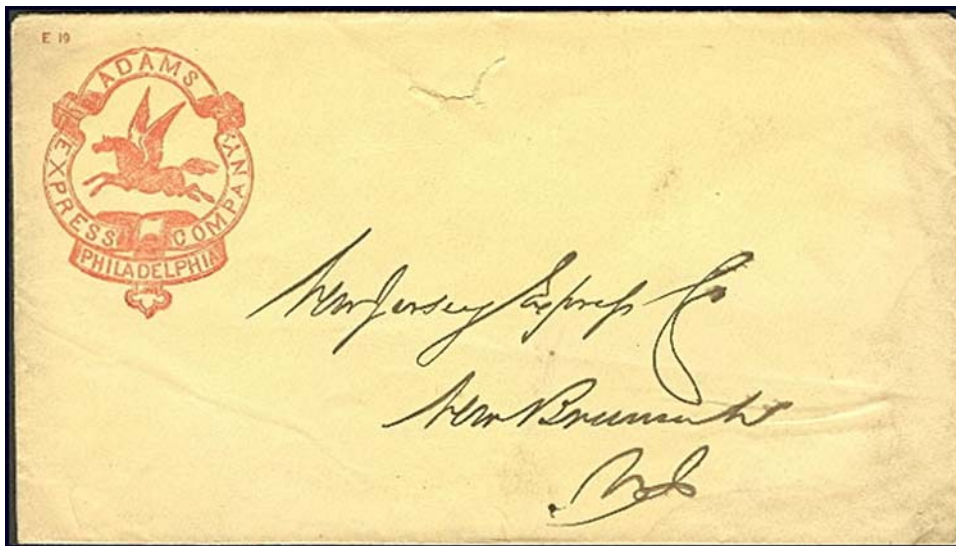 E 19
ADAMS
EXPRESS COMPANY
PHILADELPHIA
New Jersey Express Co
New Brunswick
NJ